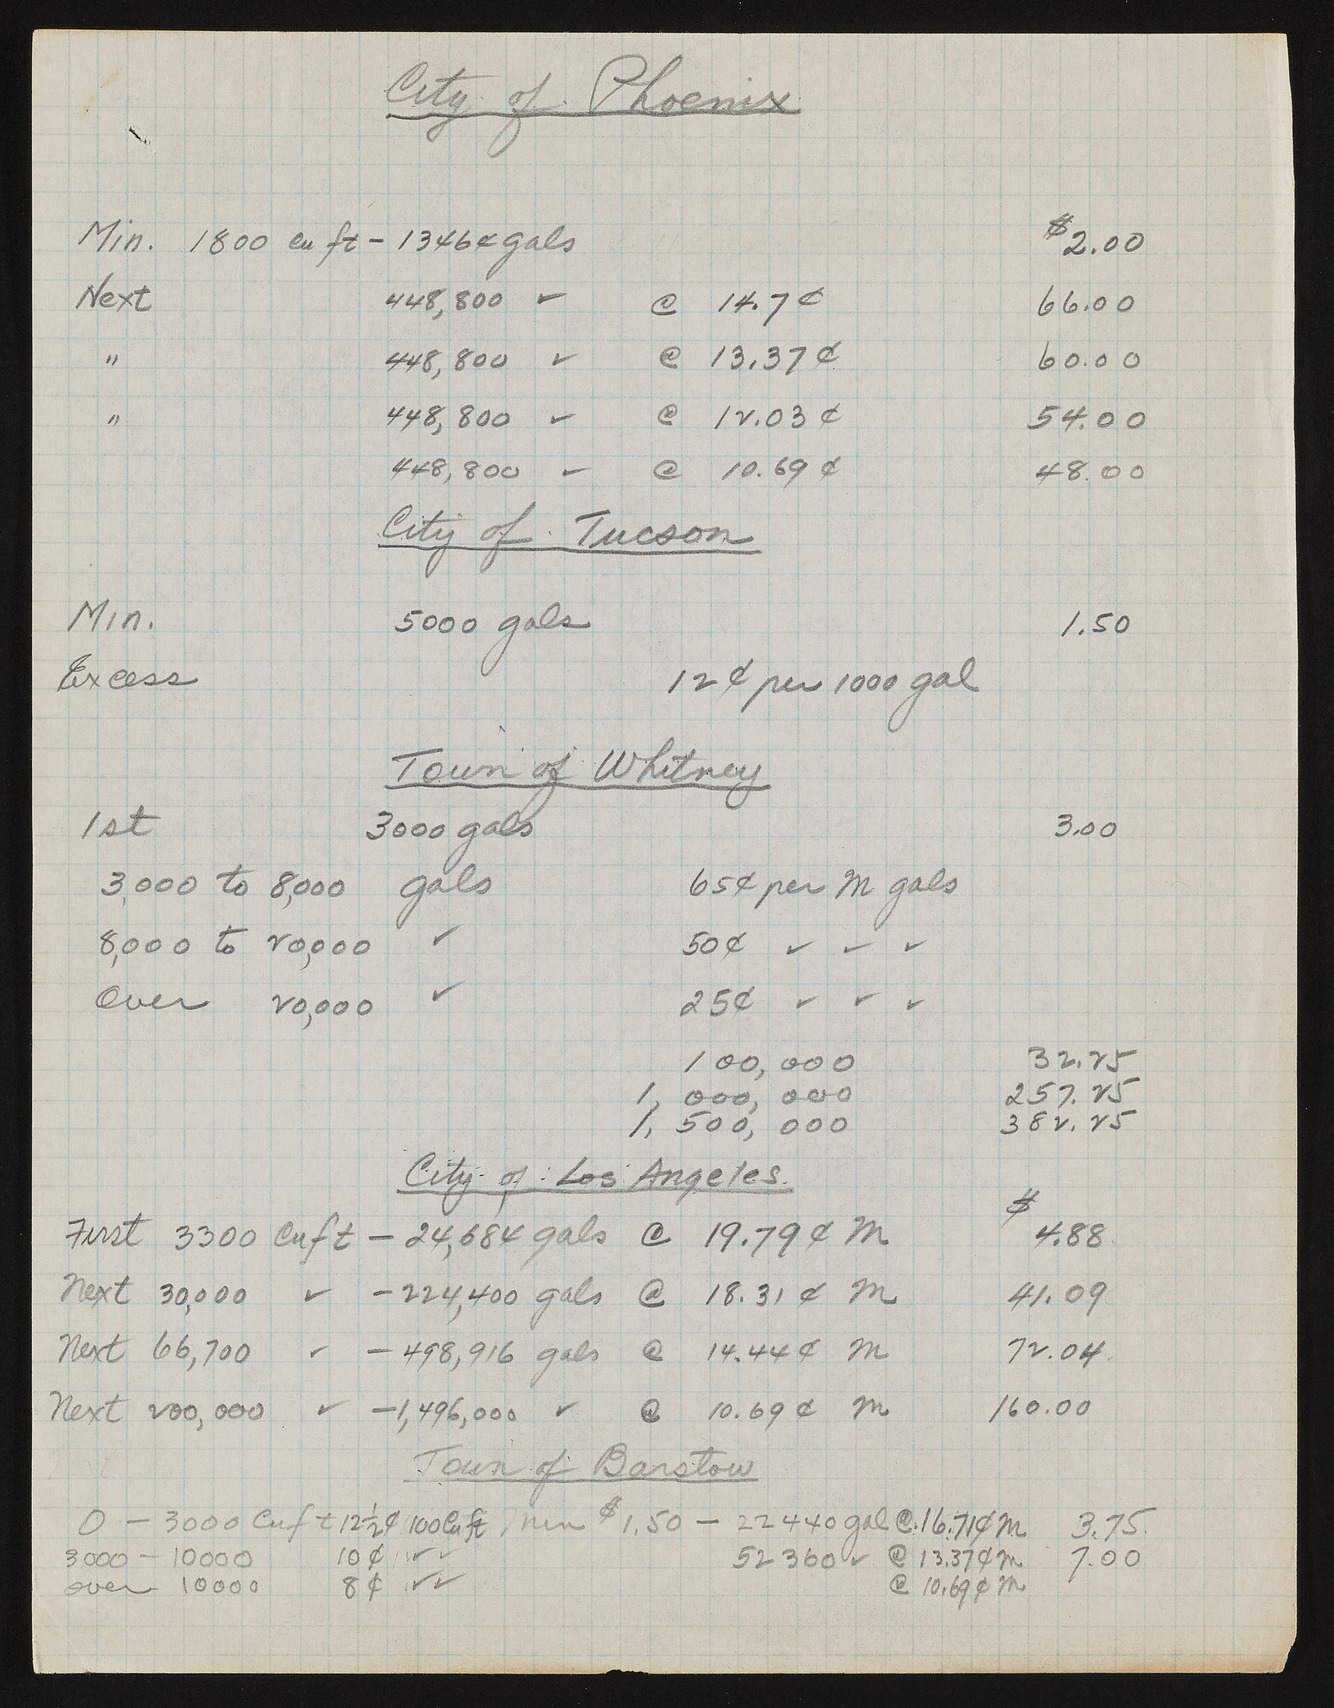 City of Phoenix
Min. 1800 cu ft - 13464 gals $2.00
Next 448,800 ✓ @ 14.7¢ 66.00
" 448,800 ✓ @ 13.37¢ 60.00
" 448,800 ✓ @ 12.03¢ 54.00
448,800 ✓ @ 10.69¢ 48.00
City of Tucson
Min. 5000 gals 1.50
Excess 12¢ per 1000 gal
Town of Whitney
1st 3000 gals 3.00
3,000 to 8,000 gals 65¢ per M gals
8,000 to 20,000 ✓ 50¢ ✓ ✓ ✓
Over 20,000 ✓ 25¢ ✓ ✓ ✓
100,000 32.25
1,000,000 257.25
1,500,000 382.25
City of Los Angeles.
First 3300 Cu ft - 24,684 gals @ 19.79¢ M $4.88
Next 30,000 ✓ - 224,400 gals @ 18.31¢ M 41.09
Next 66,700 ✓ - 498,916 gals @ 14.44¢ M 72.04
Next 200,000 ✓ - 1,496,000 ✓ @ 10.69¢ M 160.00
Town of Barstow
0 - 3000 Cu ft 12½¢ 100 Cu ft Min $1.50 - 22440 gal @ 16.71¢ M 3.75
3000 - 10000 10¢ ✓ ✓ 52360 ✓ @ 13.37¢ M 7.00
over 10000 8¢ ✓ ✓ @ 10.69¢ M